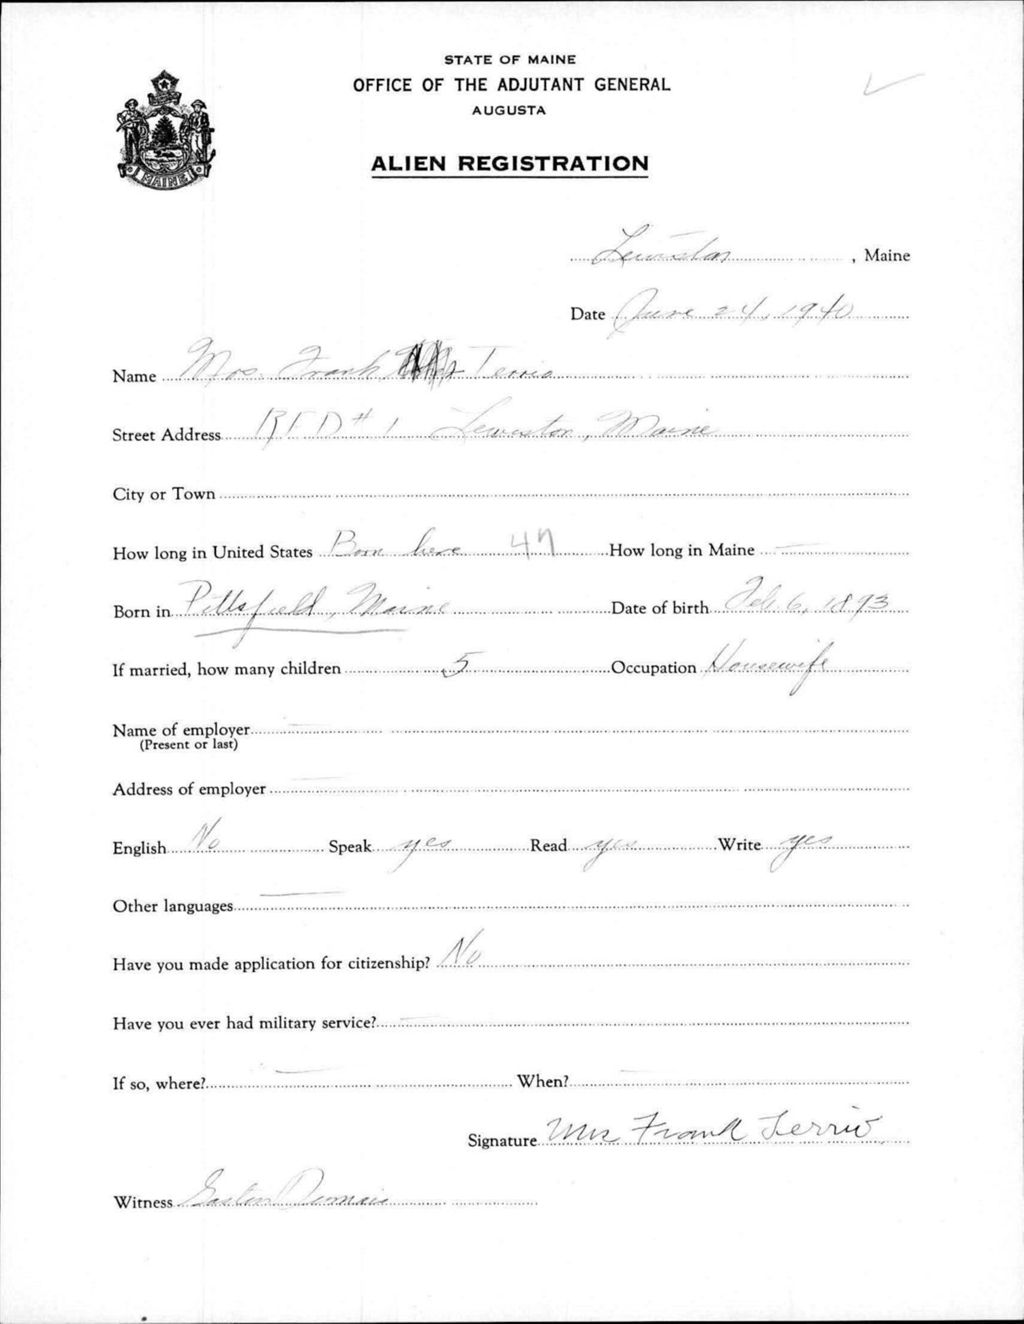 STATE OF MAINE
OFFICE OF THE ADJUTANT GENERAL
AUGUSTA
ALIEN REGISTRATION
MAINE
Lewiston, Maine
Date June 24, 1940
Name Mrs. Frank Terrio
Street Address RFD #1 Lewiston, Maine
City or Town
How long in United States Born here 47 How long in Maine —
Born in Pittsfield, Maine Date of birth Feb. 6, 1893
If married, how many children 5 Occupation Housewife
Name of employer —
(Present or last)
Address of employer —
English No Speak yes Read yes Write yes
Other languages —
Have you made application for citizenship? No
Have you ever had military service? —
If so, where? — When? —
Signature Mrs Frank Terrio
Witness